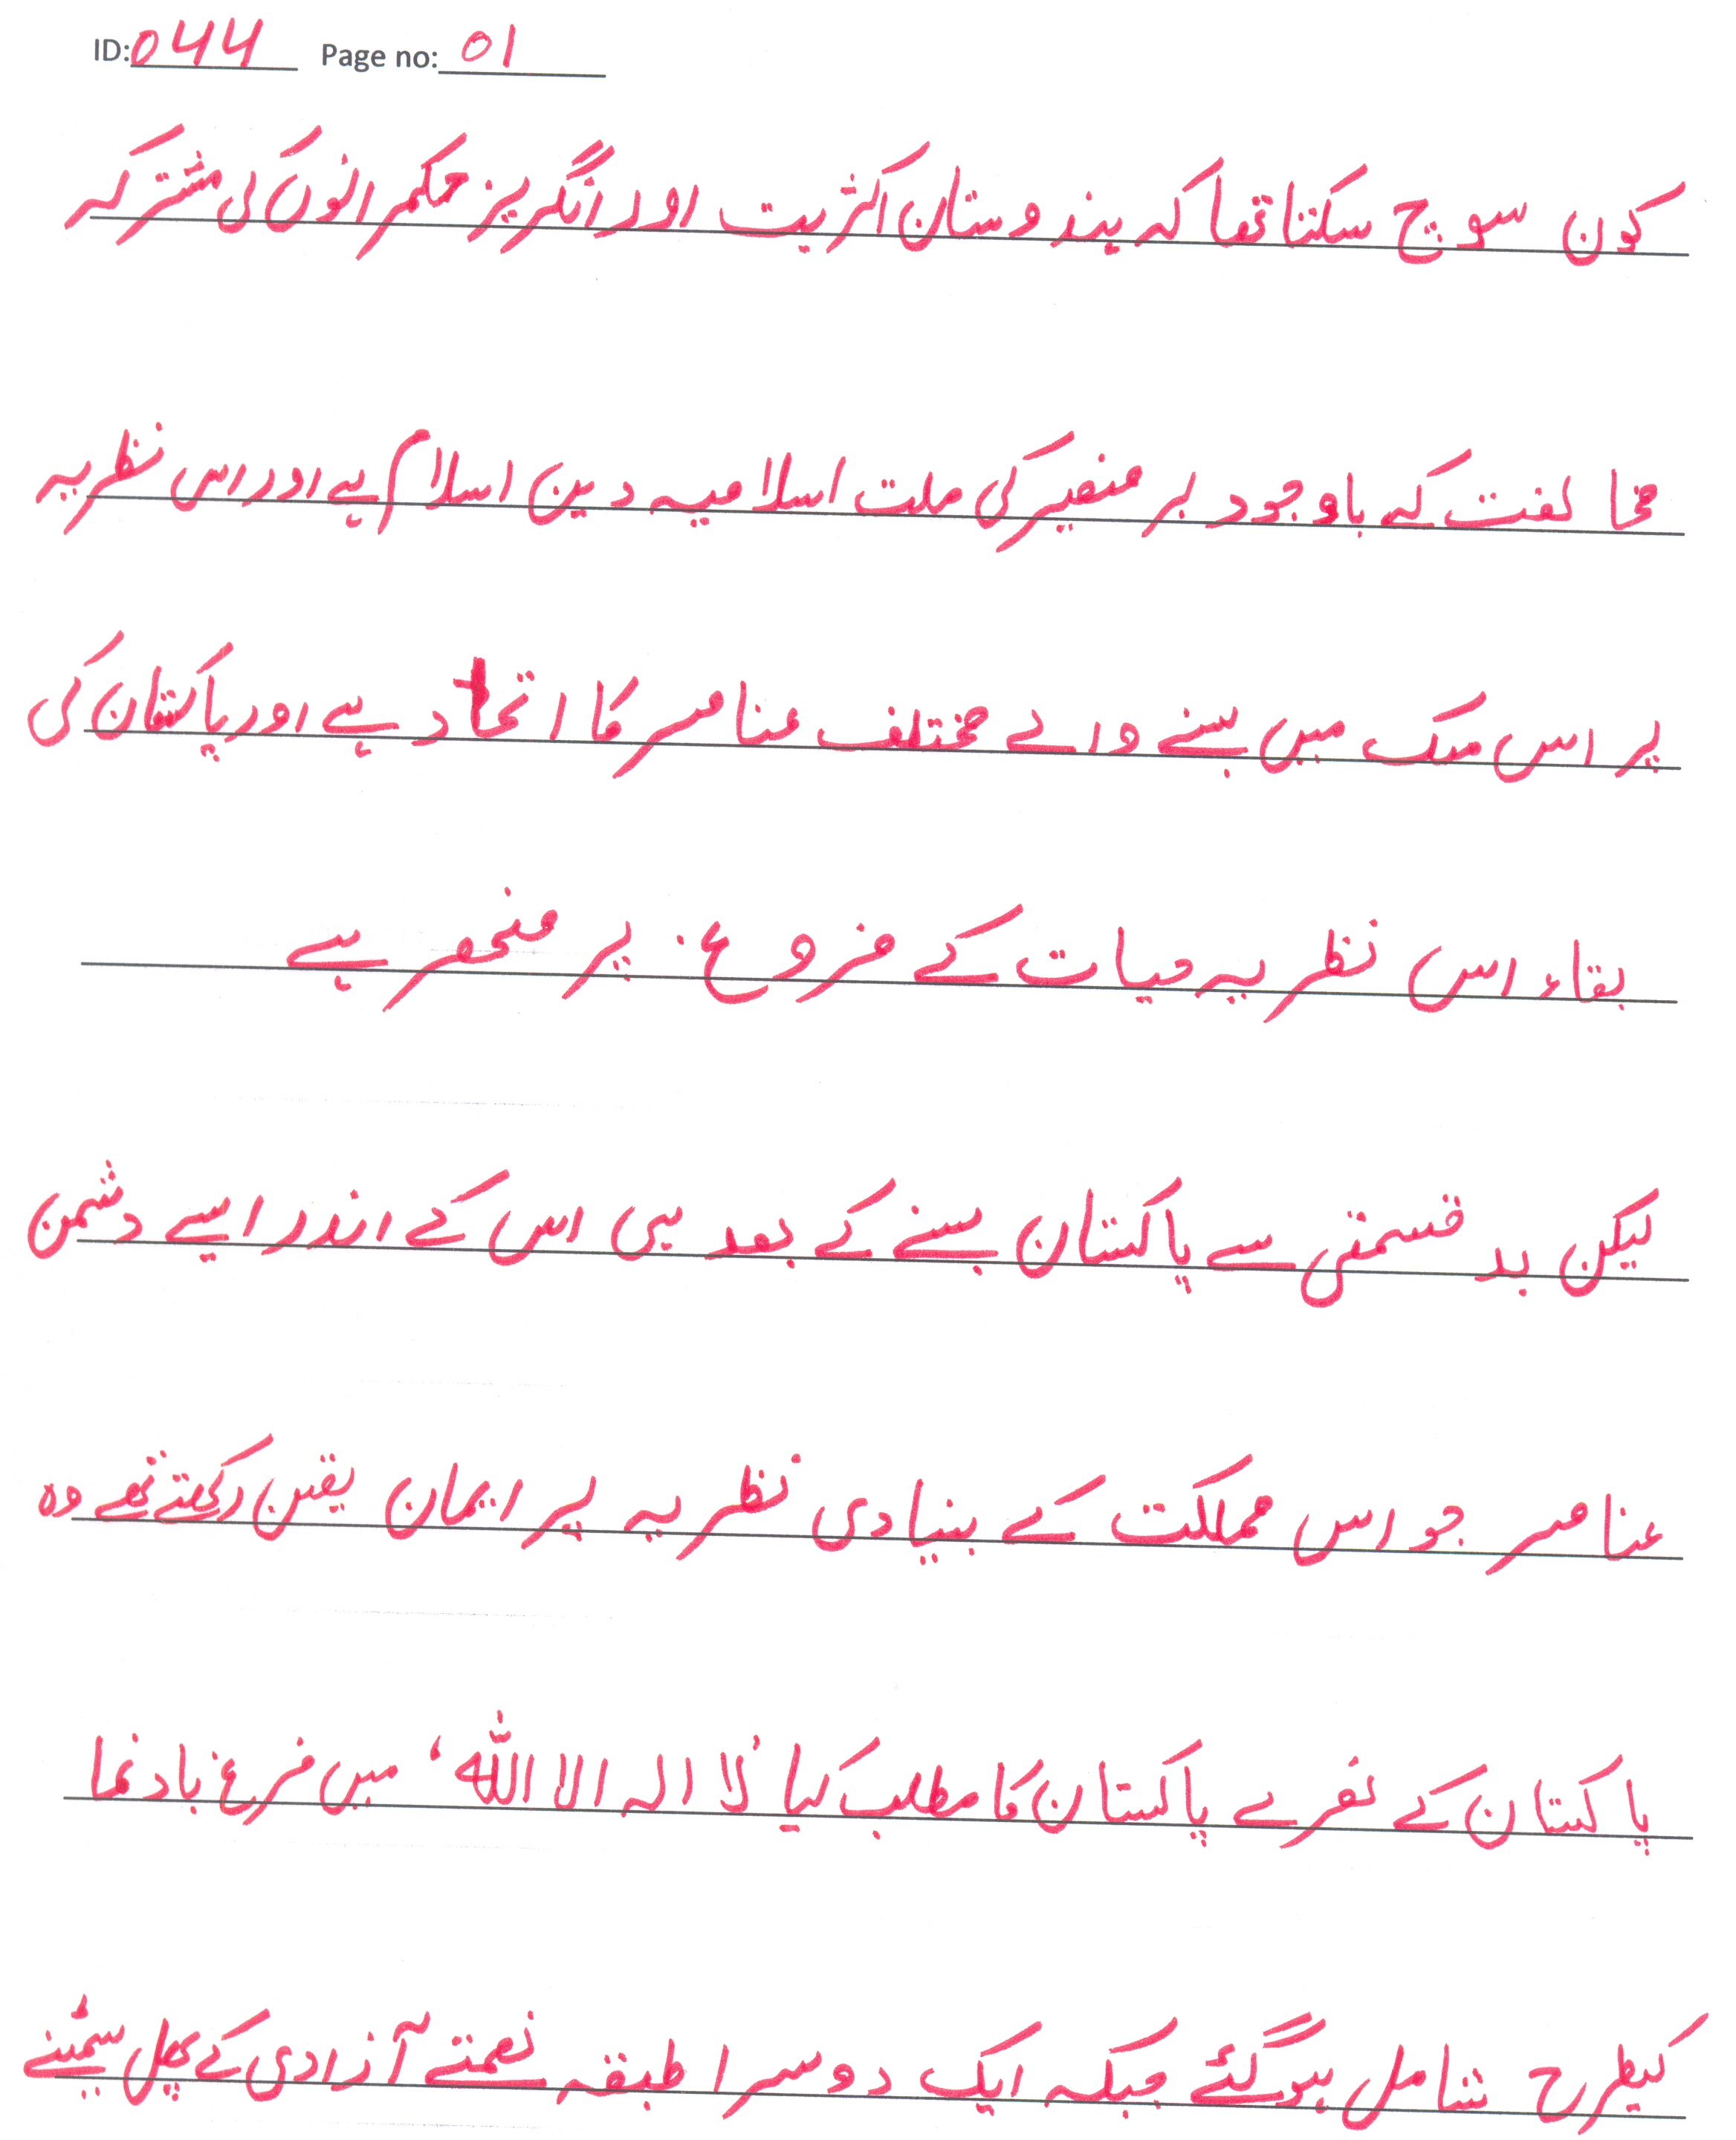 ID: 044 Page no: 01
کون سوچ سکتا تھا کہ ہندوستان اکثریت اور انگریز حکمرانوں کی مشترکہ
مخالفت کے باوجود برصغیر کی ملت اسلامیہ دین اسلام ہے اور اس نظریہ
پر اس ملک میں بسنے والے مختلف عناصر کا اتحاد ہے اور پاکستان کی
بقاء اس نظریہ حیات کے فروغ پر منحصر ہے
لیکن بد قسمتی سے پاکستان بننے کے بعد ہی اس کے اندر ایسے دشمن
عناصر جو اس مملکت کے بنیادی نظریہ پر ایمان یقین رکھتے تھے وہ
پاکستان کے نعرے پاکستان کا مطلب کیا 'لا الہ الا اللہ' میں فرغ باد نما
کیطرح شامل ہوگئے جبکہ ایک دوسرا طبقہ نعمتے آزادی کے پھل سمٹنے